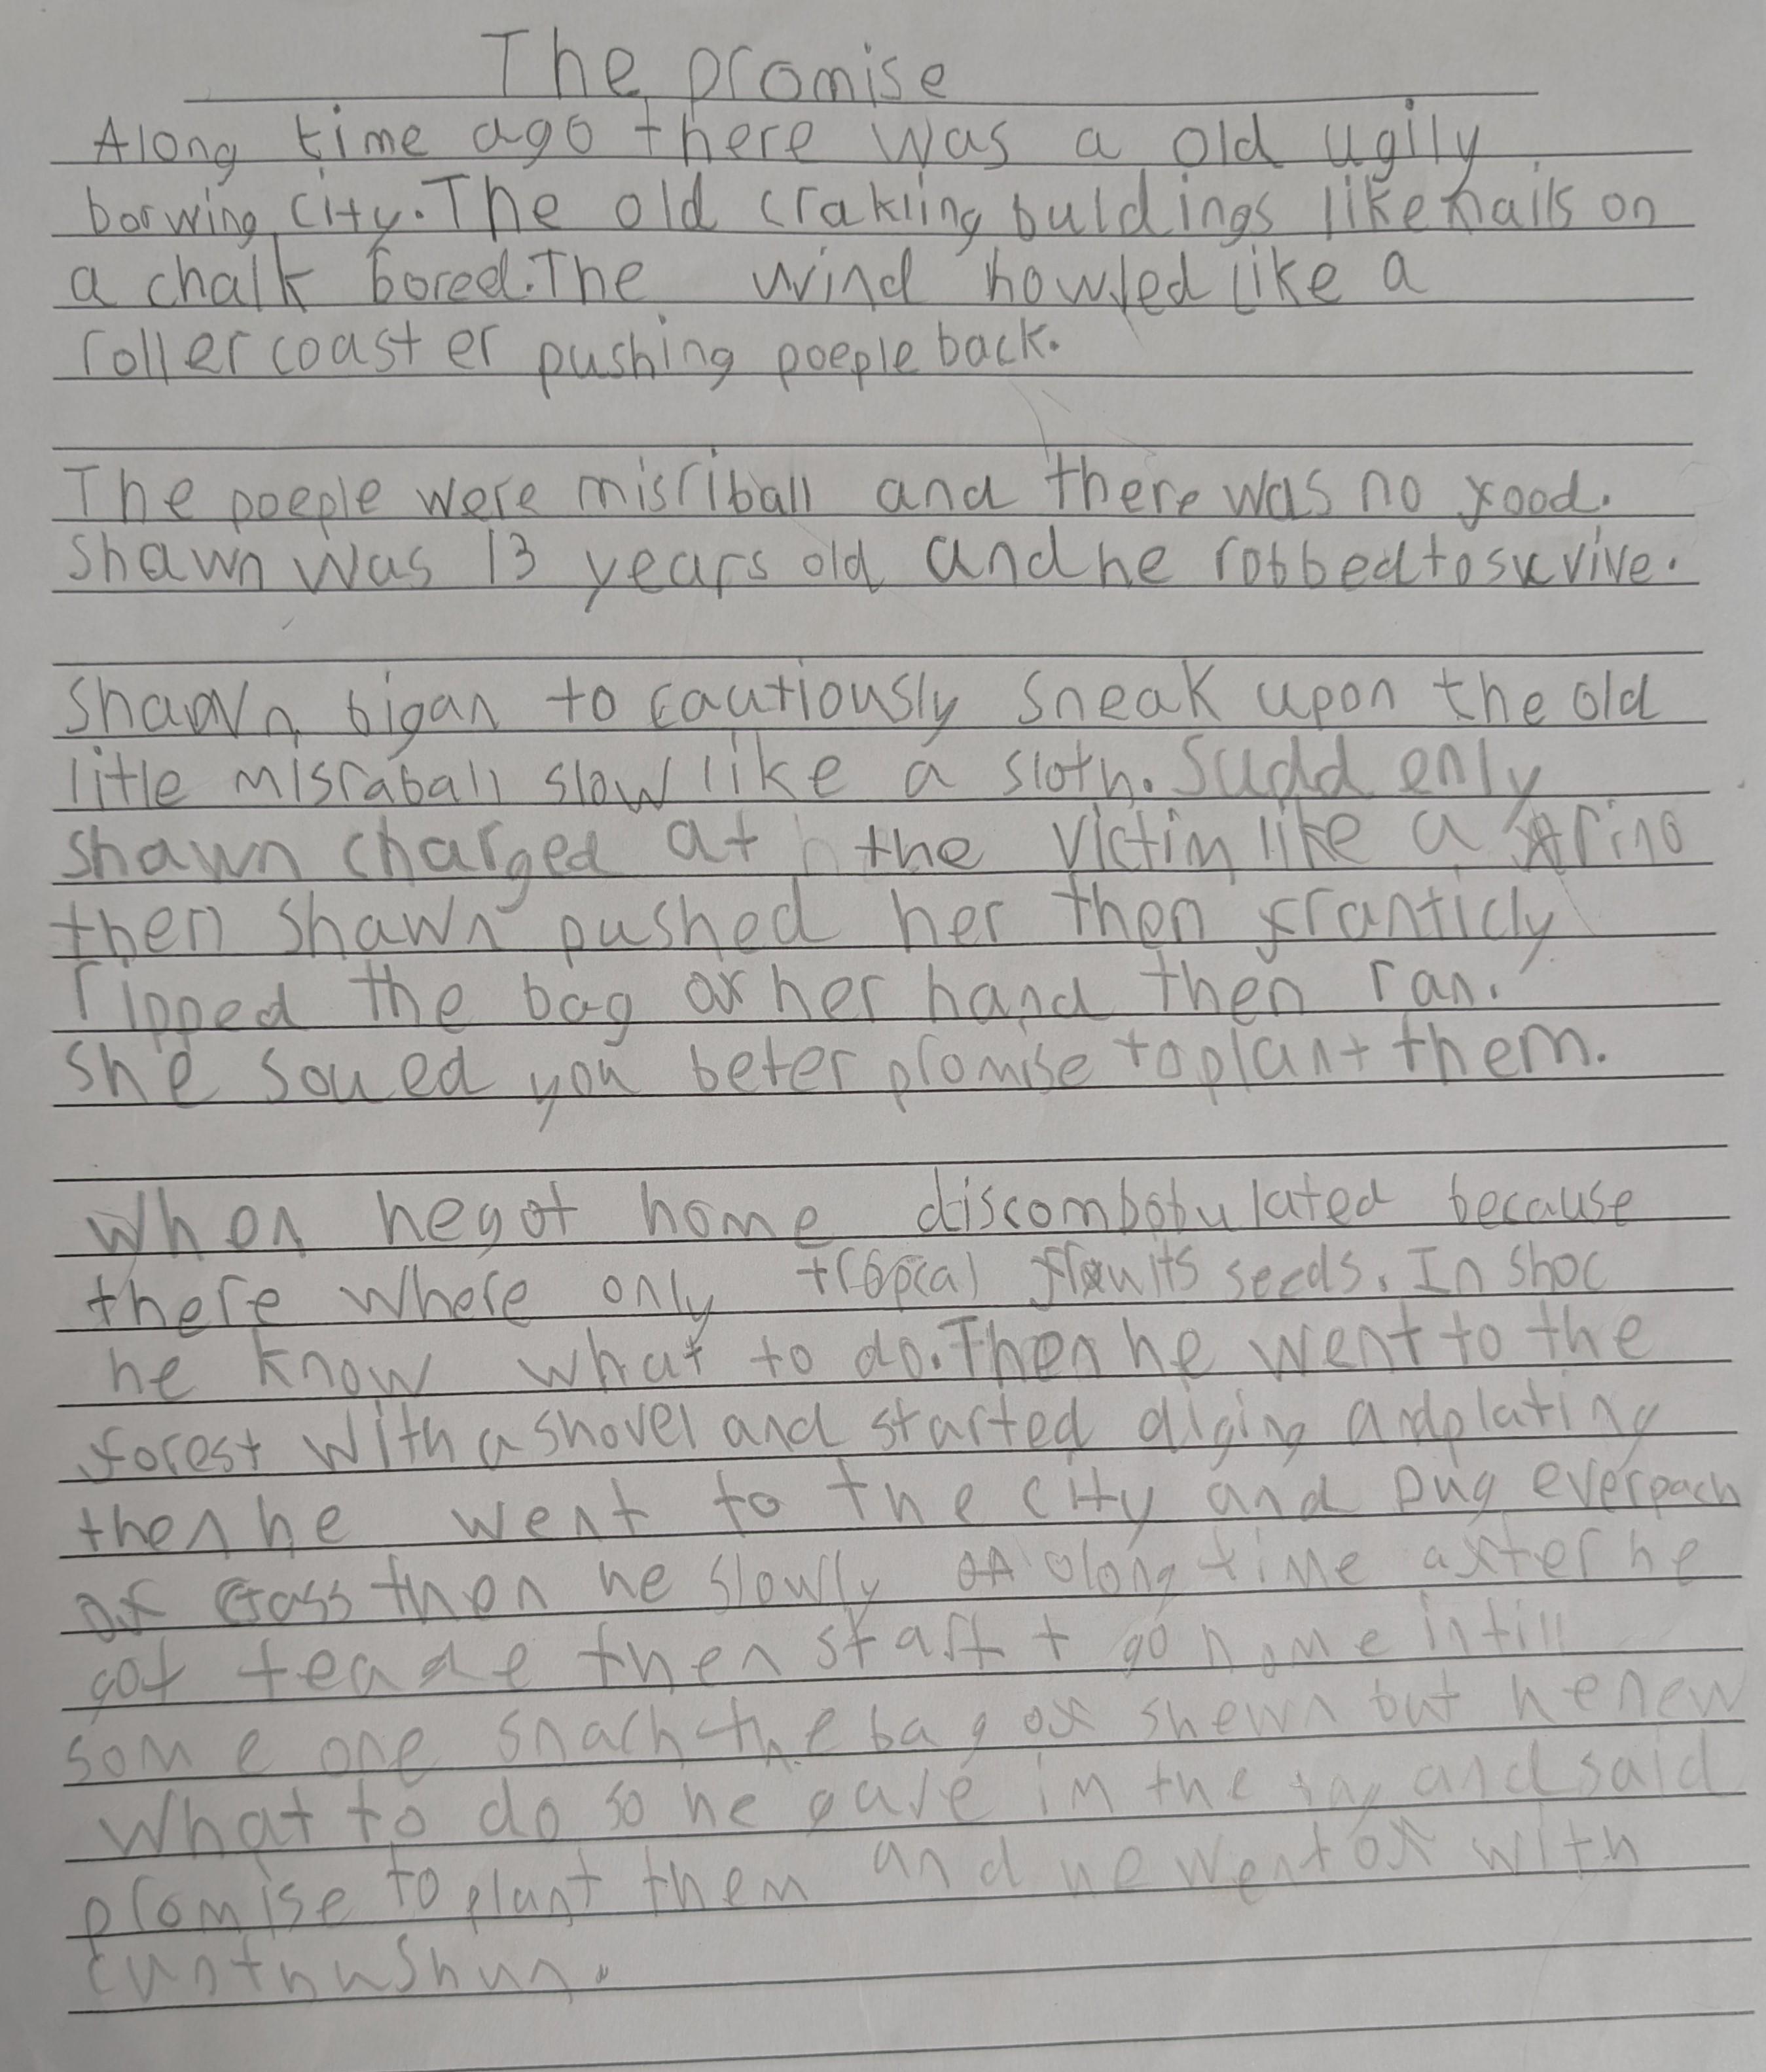 The promise
Along time ago there was a old ugily
borwing city. The old crakling buldings like nails on
a chalk bored. The wind howled like a
roller coaster pushing poeple back.
The poeple were misriball and there was no food.
Shawn was 13 years old and he robbed to survive.
Shawn bigan to cautiously sneak upon the old
litle misraball slow like a sloth. Suddenly
Shawn charged at the victim like a rino
then Shawn pushed her then franticly
ripped the bag of her hand then ran.
She soued you beter promise to plant them.
When he got home discombobulated because
there where only tropical fruits seeds. In shoc
he know what to do. Then he went to the
forest with a shovel and started diging and plating
then he went to the city and Dug ever pach
of Grass then he slowly along time after he
got then start t go home intill
some one snach the bag of shewn but he new
what to do so he gave in the and said
promise to plant them and he went of with